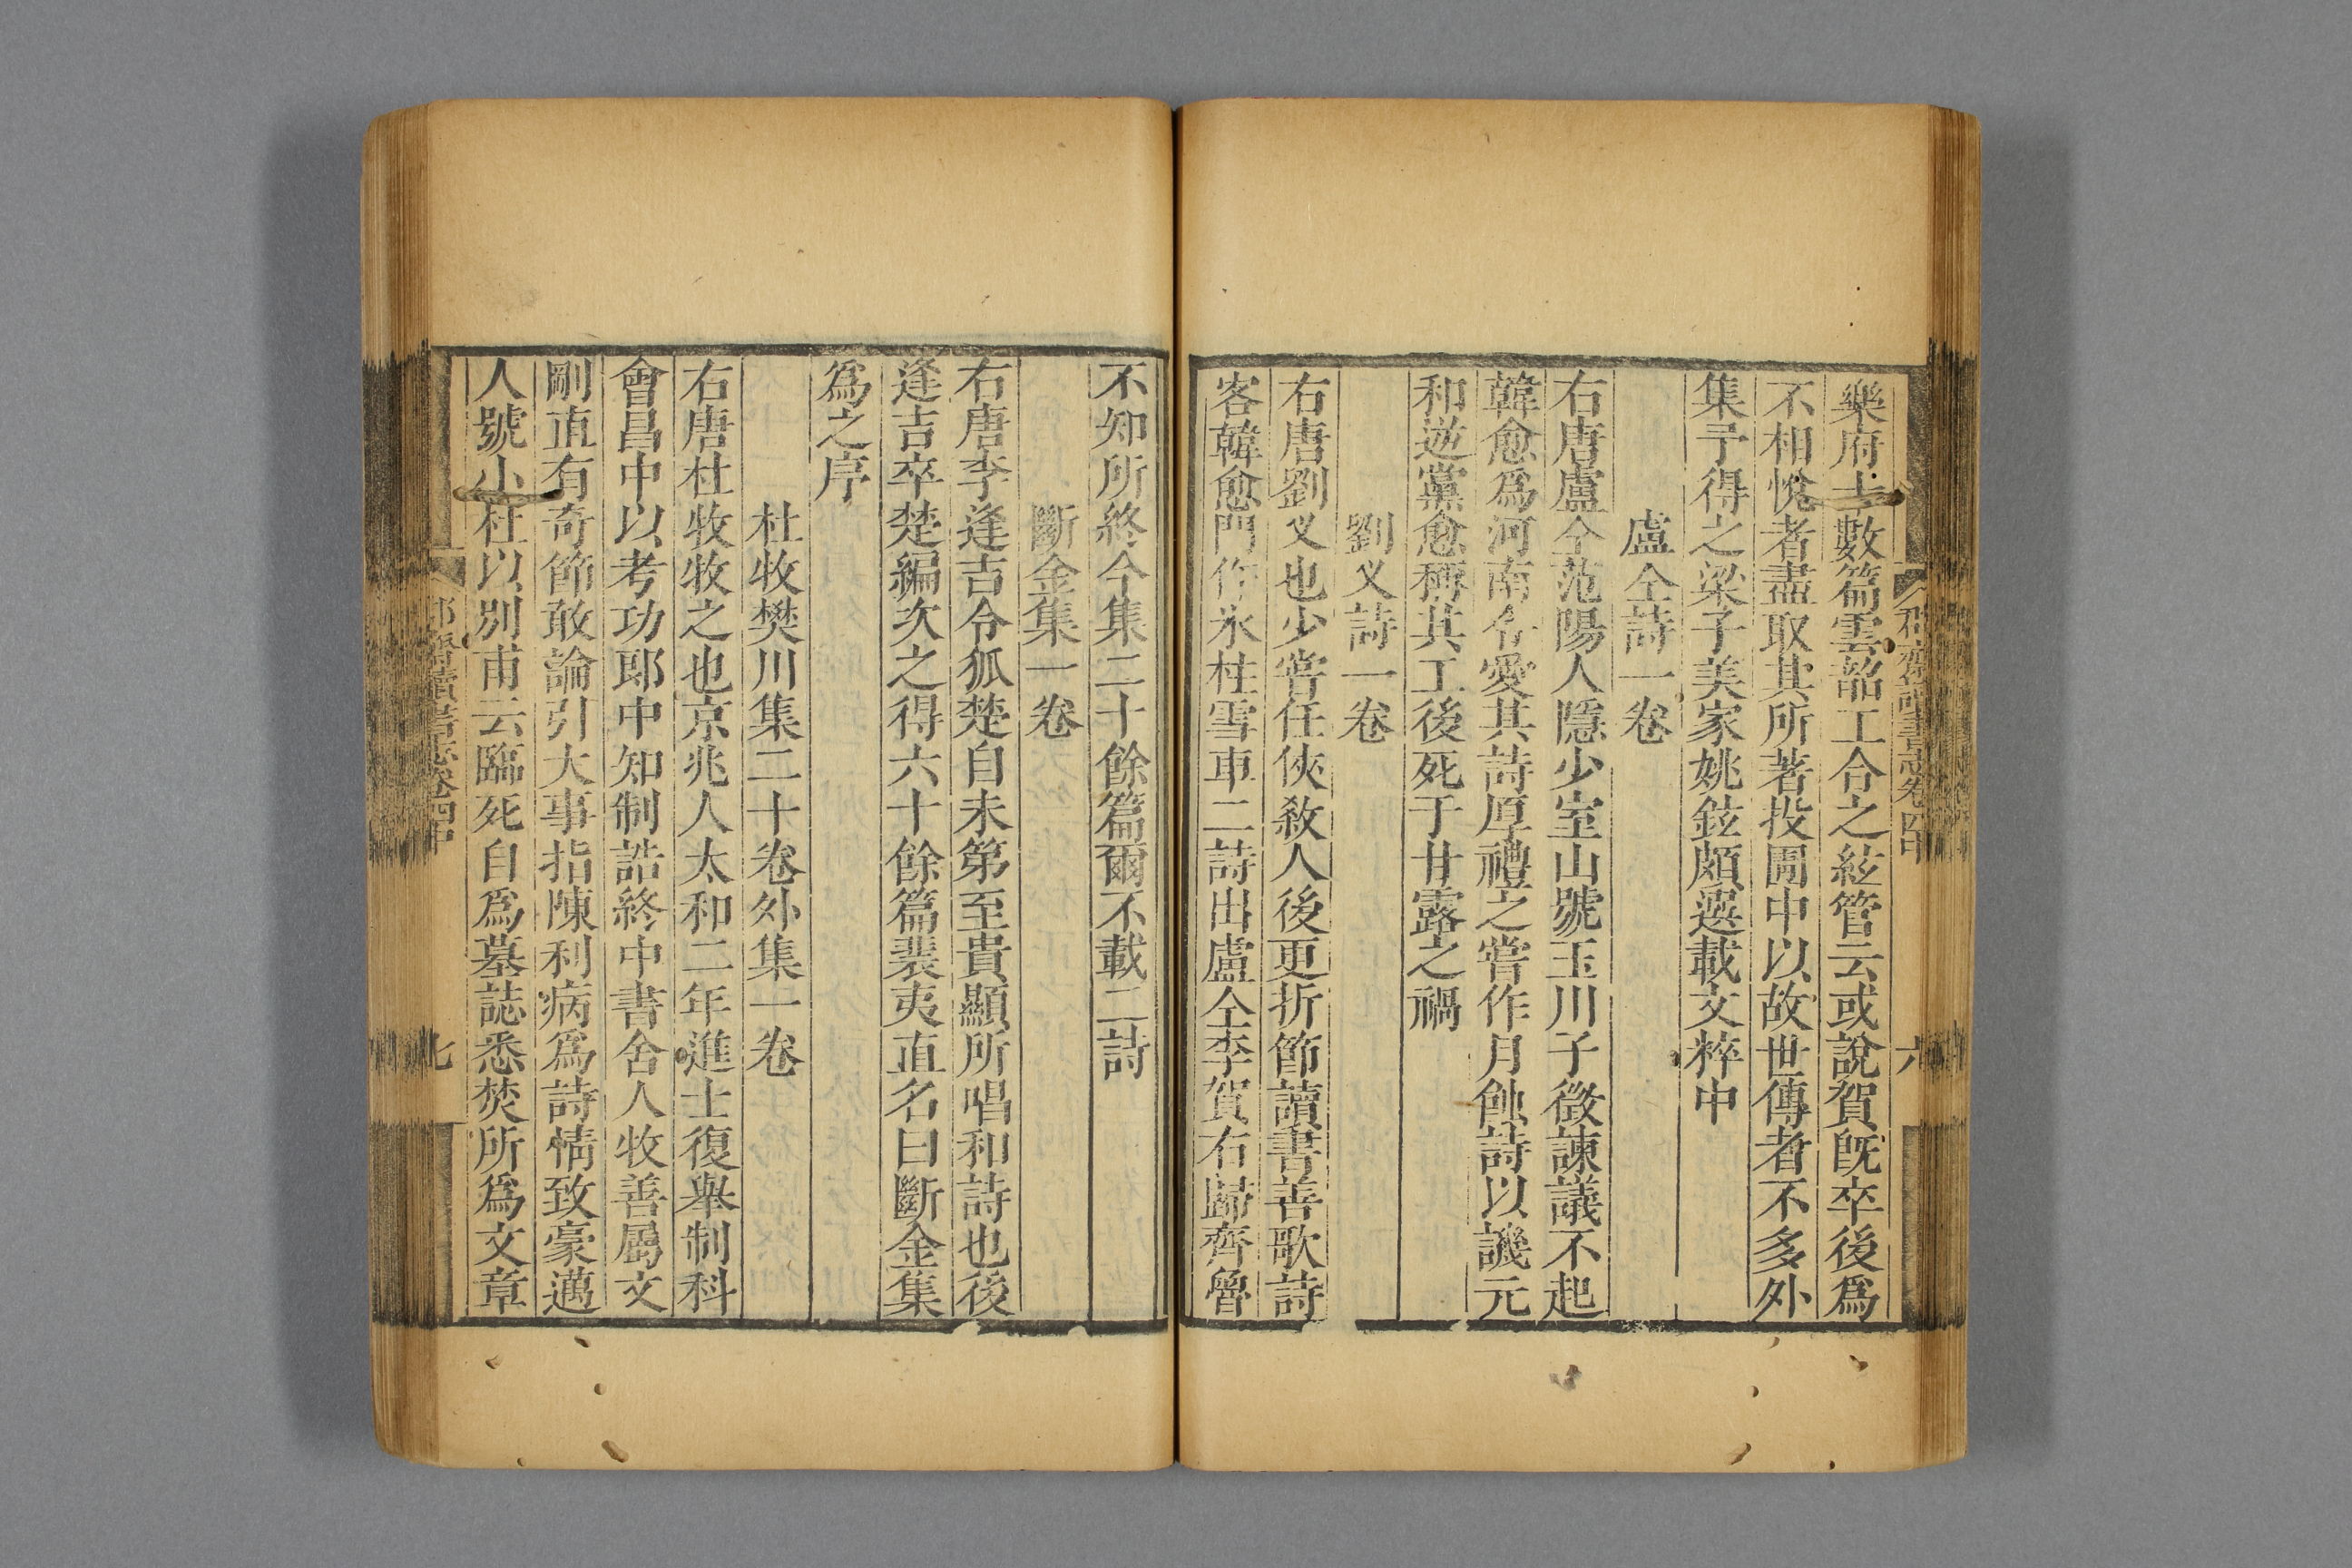 樂府十數篇雲韶工合之絃管云或說賀旣卒後爲
不相悅者盡取其所著投圊中以故世傳者不多外
集予得之梁子美家姚鉉頗選載文粹中
盧仝詩一卷
右唐盧仝范陽人隱少室山號玉川子徵諫議不起
韓愈爲河南令愛其詩厚禮之嘗作月蝕詩以譏元
和逆黨愈稱其工後死于甘露之禍
劉叉詩一卷
右唐劉叉也少嘗任俠殺人後更折節讀書善歌詩
客韓愈門作氷柱雪車二詩出盧仝李賀右歸齊魯
不知所終今集二十餘篇爾不載二詩
斷金集一卷
右唐李逢吉令狐楚自未第至貴顯所唱和詩也後
逢吉卒楚編次之得六十餘篇裴夷直名曰斷金集
爲之序
杜牧樊川集二十卷外集一卷
右唐杜牧牧之也京兆人太和二年進士復舉制科
會昌中以考功郎中知制誥終中書舍人牧善屬文
剛直有奇節敢論引大事指陳利病爲詩情致豪邁
人號小杜以別甫云臨死自爲墓誌悉焚所爲文章
郡齋讀書志卷四中
七